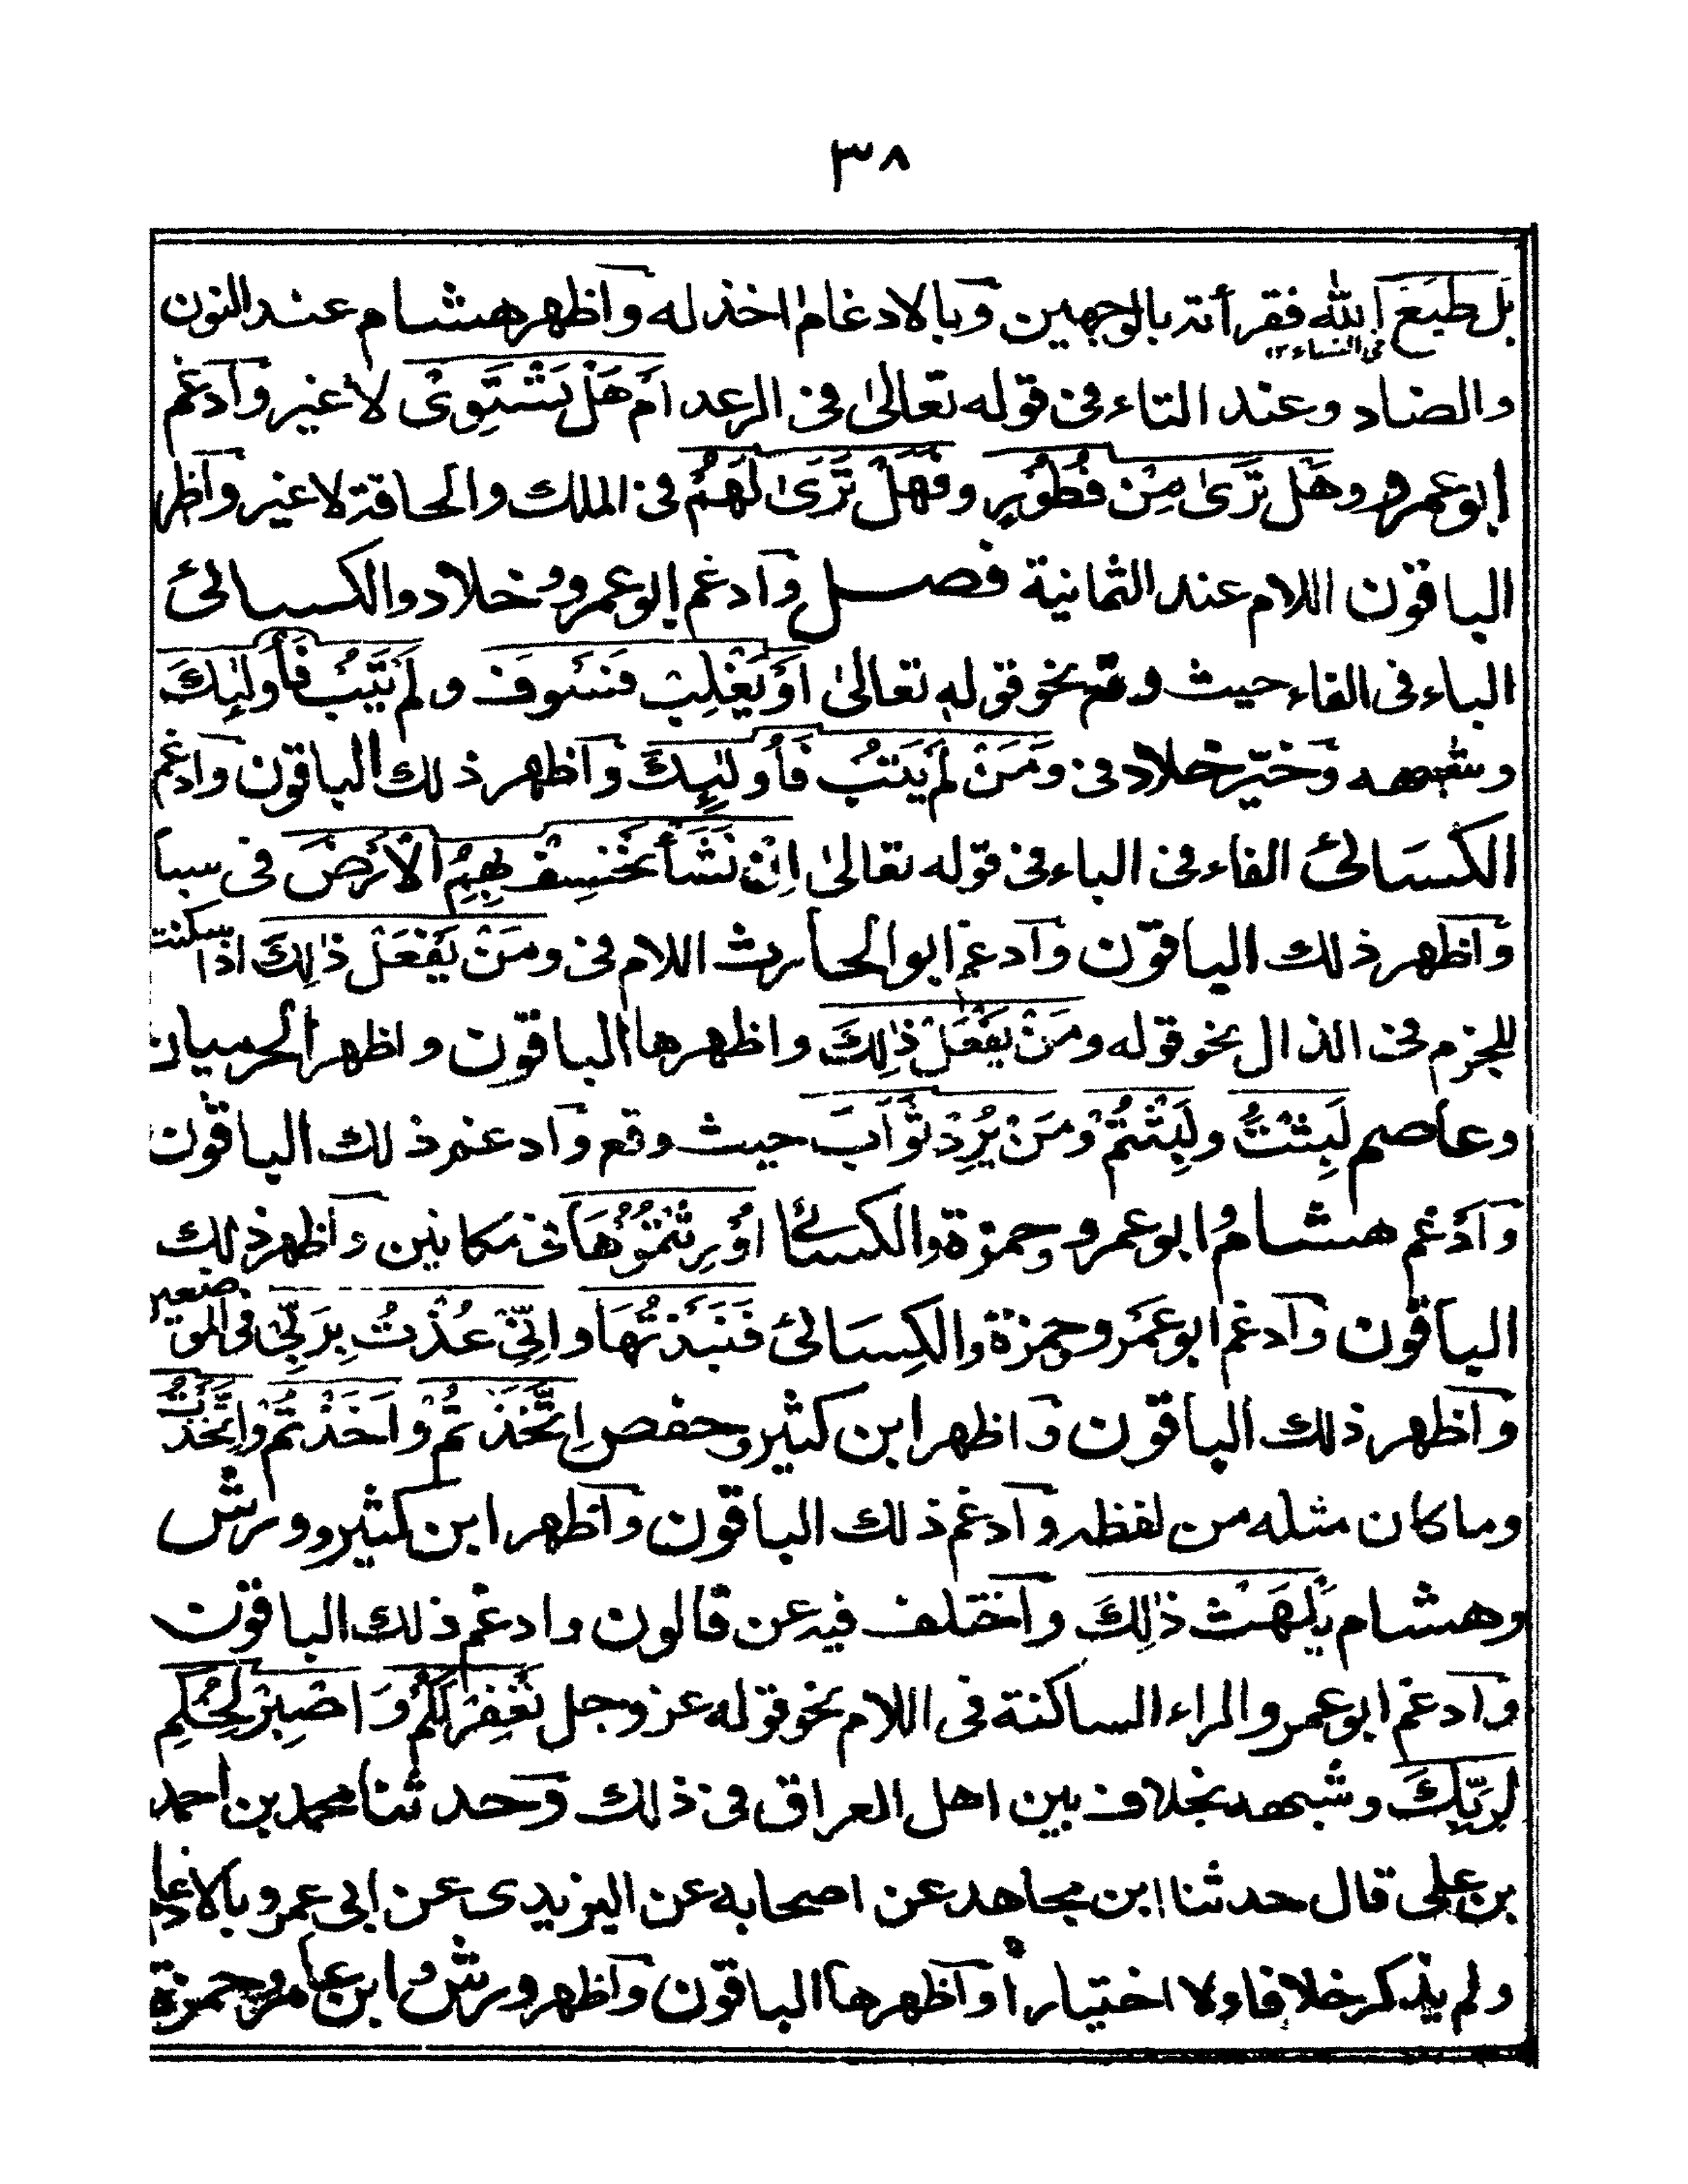 ٣٨
بَل طَبَعَ اللّٰه فقرأته بالوجهين وبالادغام اخذ له واظهر هشام عند النون
فى النساء ١٢
والضاد وعند التاء فى قوله تعالىٰ فى الرعد اَمْ هَلْ تَسْتَوِىْ لا غير وادغم
ابو عمرو وهَلْ تَرىٰ مِنْ فُطُوْرٍ وفَهَلْ تَرَىٰ لَهُمْ فى الملك والحاقة لا غير واظهر
الباقون اللام عند الثمانية فصل وادغم ابو عمرو وخلاد والكسائى
الباء فى الفاء حيث وقع نحو قوله تعالىٰ اَوْ يَغْلِبْ فَسَوفَ ولَمْ يَتُبْ فَاُولٰئِكَ
وشبهه وخيّر خلاد فى ومَنْ لَمْ يَتُبْ فَاُولٰئِكَ واظهر ذلك الباقون وادغم
الكسَائى الفاء فى الباء فى قوله تعالىٰ اِنْ نَشَأْ نَخْسِفْ بِهِمُ الْاَرْضَ فى سبا
واظهر ذلك الباقون وادغم ابو الحارث اللام فى ومَنْ يَفْعَلْ ذٰلِكَ اذا سكنت
للجزم فى الذال نحو قوله ومَنْ يَفْعَلْ ذٰلِكَ واظهرها الباقون واظهر الحرميان
وعاصم لَبِثْتُ ولَبِثْتُمْ ومَنْ يُرِدْ ثَوَابَ حيث وقع وادغم ذلك الباقون
وادْغم هشام وابو عمرو وحمزة والكسائى اُوْرِثْتُمُوْهَا فى مكانين واظهر ذلك
الباقون وادغم ابو عمَرو وحمزة والكِسَائى فَنَبَذْتُهَا واِنِّىْ عُذْتُ بِرَبِّىْ فى الموضعين
واظهر ذلك الباقون واظهر ابن كثير وحفص اِتَّخَذْتُمْ وَاَخَذْتُمْ وَاتَّخَذْتُ
وما كان مثله من لفظه وادغم ذلك الباقون واظهر ابن كثير وورش
وهشام يَلْهَثْ ذٰلِكَ واختلف فيه عن قالون وادغم ذلك الباقون
وادغم ابو عمرو الراء الساكنة فى اللام نحو قوله عز وجل نَغْفِرْ لَكُمْ وَاصْبِرْ لِحُكْمِ
لِرَبِّكَ وشبهه بخلاف بين اهل العراق فى ذلك وحدثنا محمد بن احمد
بن على قال حدثنا ابن مجاهد عن اصحابه عن اليزيدى عن ابى عمرو بالادغام
ولم يذكر خلافا ولا اختيارا واظهرها الباقون واظهر ورش وابن عامر وحمزة